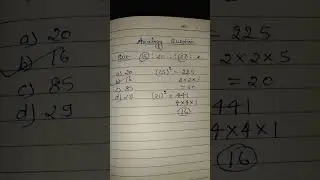 Analogy Question
a) 20
b) 16
c) 85
d) 29
(15)² = 225
2×2×5
= 20
(21)² = 441
4×4×1
16
a) 20
b) 16
c) 85
d) 29
= 225
2×2×5
= 20
441
4×4×1
16